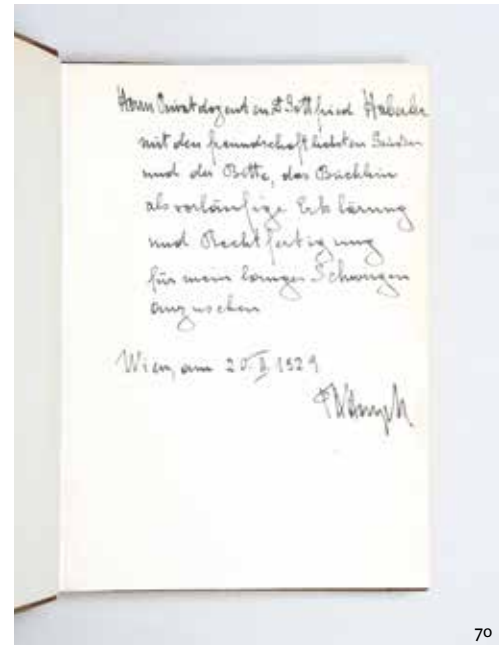 Herrn Privatdozenten Dr Gottfried Haberler
mit den freundschaftlichsten Grüßen
und der Bitte, das Büchlein
als vorläufige Erklärung
und Rechtfertigung
für mein langes Schweigen
anzusehen
Wien, am 20. II 1929
70